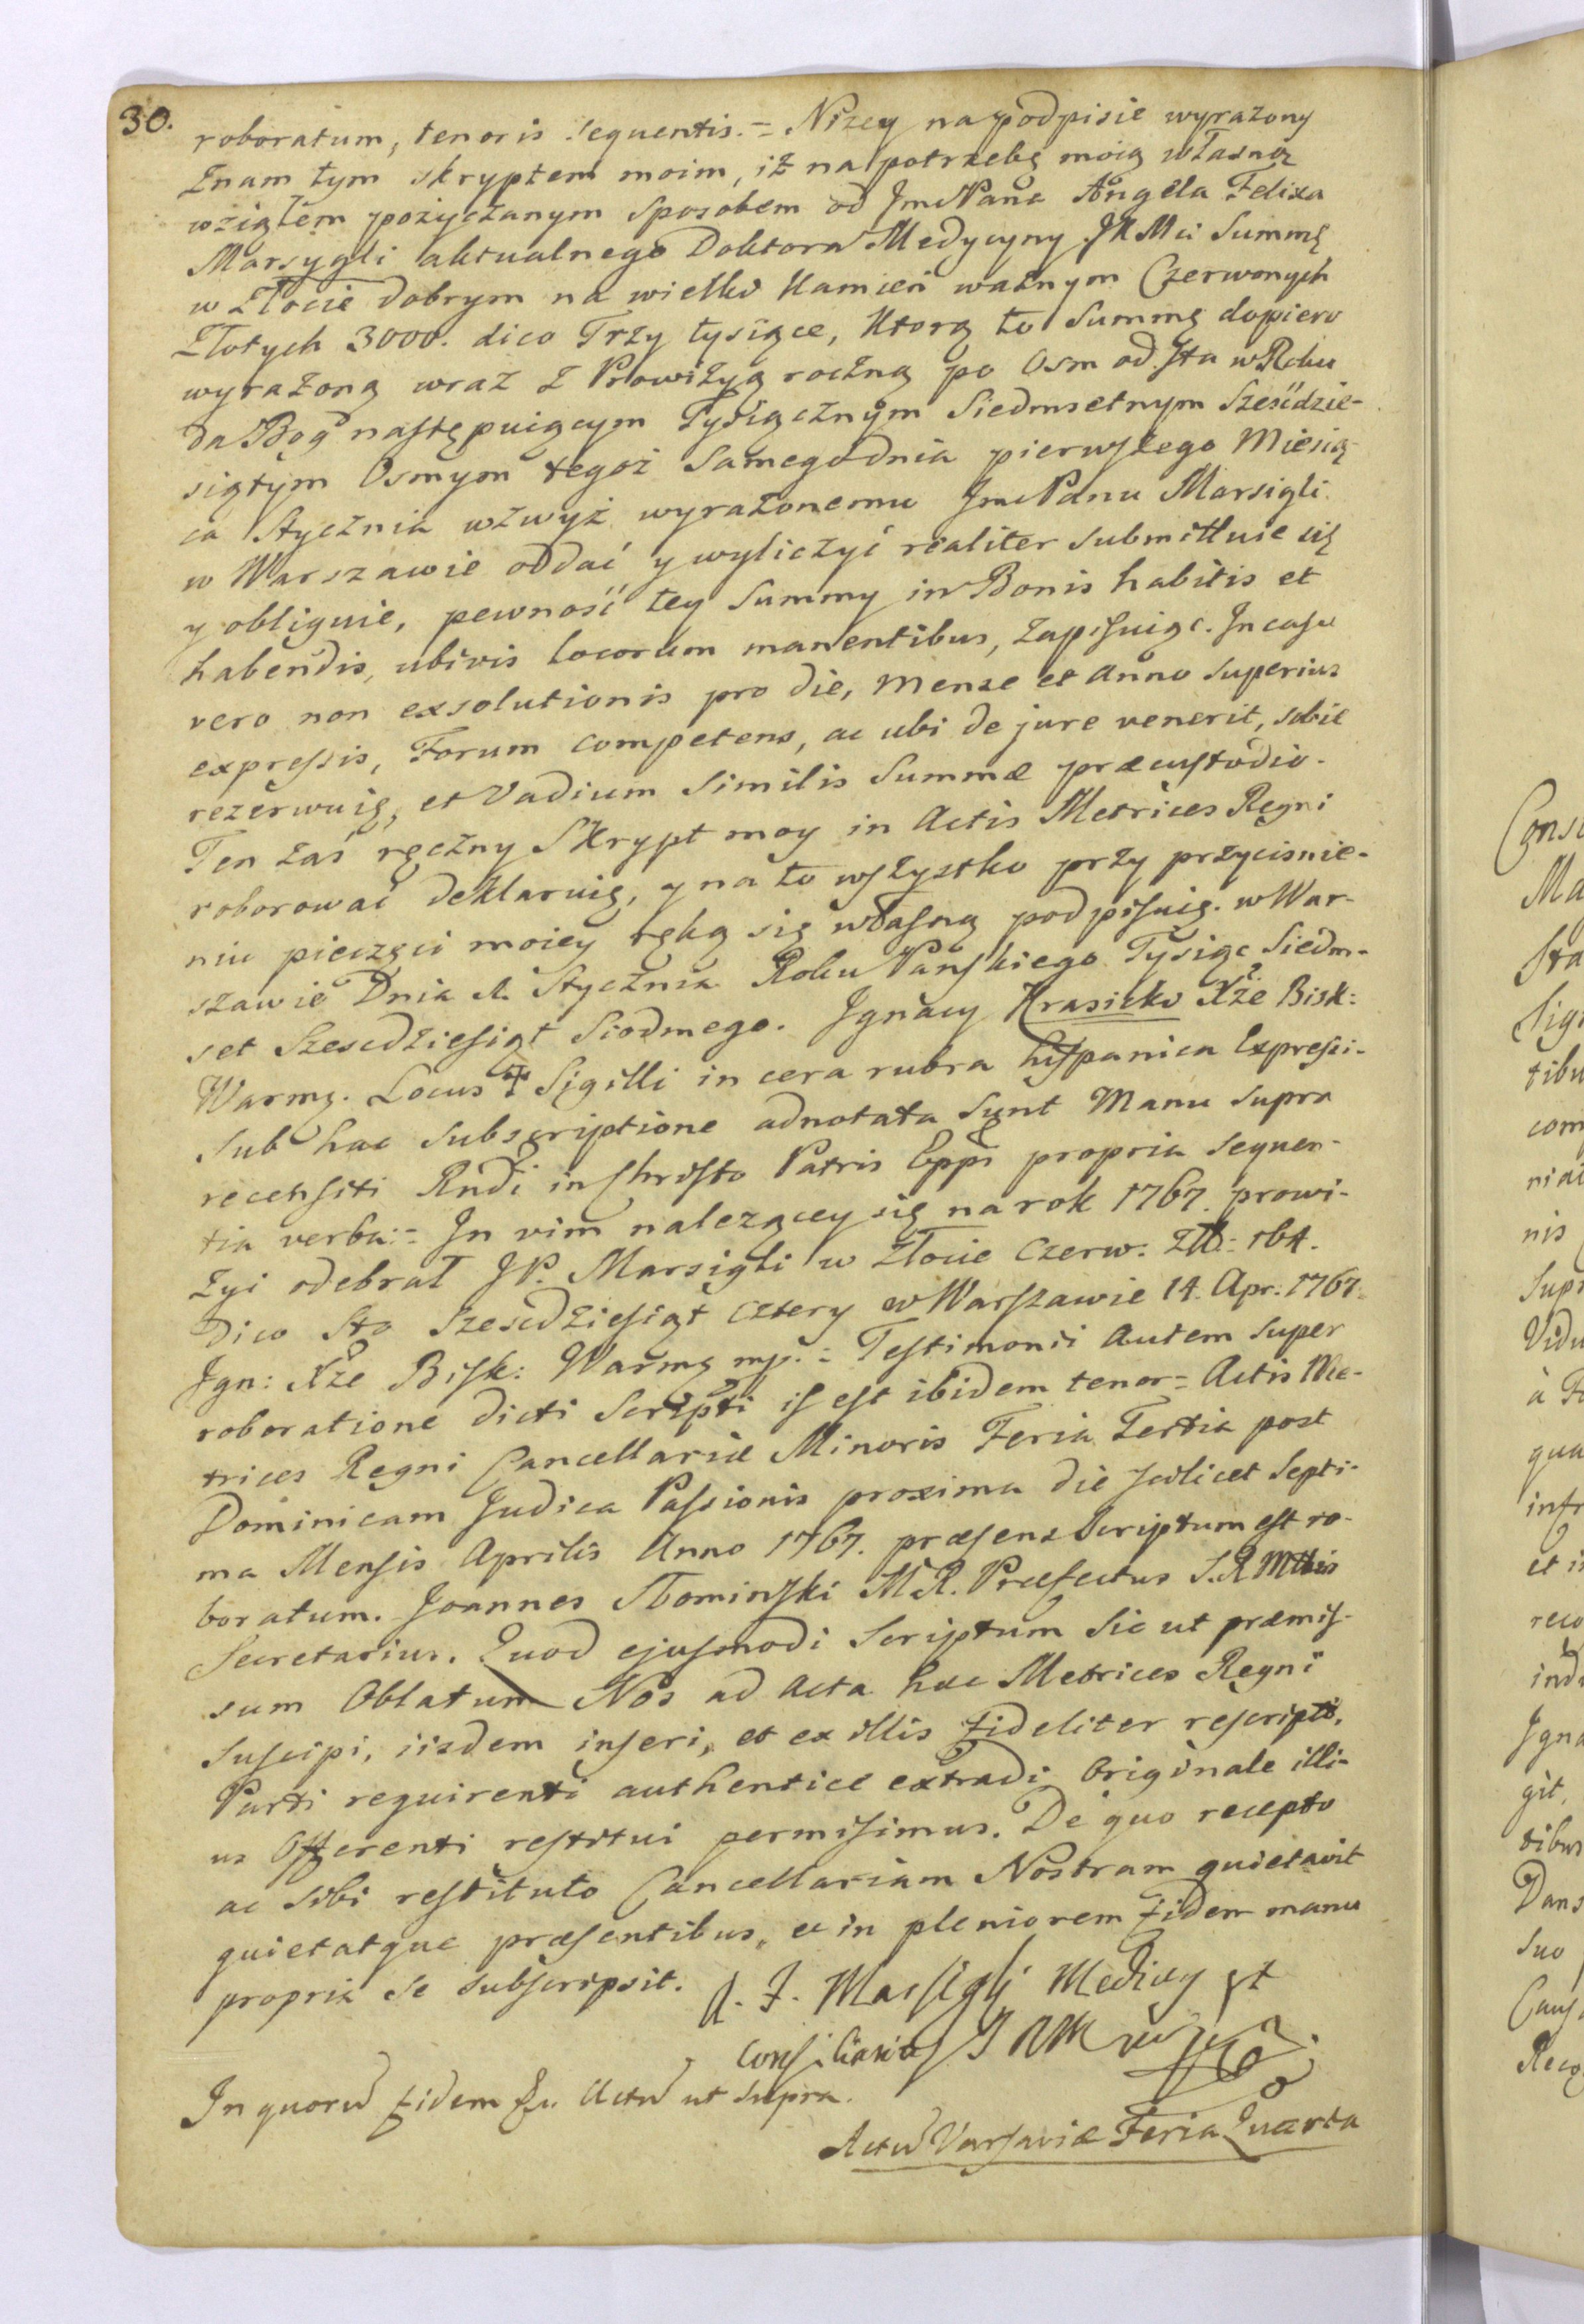 30.
roboratum, tenoris sequentis. = Nizey na podpisie wyrazony
Znam tym skryptem moim, iż na potrzebę moią własną
wziąłem pożyczanym sposobem od Jmć Pana Angela Felixa
Marsygli aktualnego Doktora Medycyny JKMci Summę
w Złocie dobrym na wielki Kamień ważnym Czerwonych
Złotych 3000. dico Trzy tysiące, Ktorą to Summę dopiero
wyrażoną wraz z Prowizyą roczną po Osm od Sta w Roku
da Bog następuiącym Tysiącznym Siedmsetnym Sześćdzie-
siątym Osmym tegoż Samego dnia pierwszego Miesią-
ca Stycznia wzwyż wyrażonemu Jmć Panu Marsigli
w Warszawie oddać y wyliczyć realiter submittuie się
y obliguie, pewność tey Summy in Bonis habitis et
habendis, ubivis locorum manentibus, zapisuiąc. In casu
vero non exsolutionis pro die, mense et anno superius
expressis, Forum competens, ac ubi de jure venerit, sobie
rezerwuię, et Vadium similis Summæ præcustodio.
Ten zaś ręczny Skrypt moy in Actis Metrices Regni
roborować deklaruię, y na to wszystko przy przyciśnie-
niu pieczęci moiey ręką się własną podpisuię. w War-
szawie Dnia 1. Stycznia Roku Pańskiego Tysiąc Siedm-
set Szescdziesiąt Siodmego. Jgnacy Krasicki Xże Bisk:
Warmę. Locus Sigilli in cera rubra hispanica Expressi.
Sub hac subscriptione adnotata sunt Manu supra
recensiti Rndi in Christo Patris Eppi propria sequen-
tia verba: = In vim nalezącey się na rok 1767. prowi-
zyi odebrał JP. Marsigli w złocie Czerw: Złł: 164.
dico Sto Szescdziesiąt cztery w Warszawie 14. Apr. 1767.
Jgn: Xże Bisk: Warmę mp. = Testimonii autem super
roboratione dicti Scripti is est ibidem tenor = Actis Me-
trices Regni Cancellariæ Minoris Feria Tertia post
Dominicam Judica Passionis proxima die scilicet Septi-
ma Mensis Aprilis Anno 1767. præsens scriptum est ro-
boratum. Joannes Słominski M.R. Præfectus S.R.Mttis
Secretarius. Quod ejusmodi Scriptum sic ut præmis-
sum Oblatum Nos ad Acta hæc Metrices Regni
suscipi, iisdem inseri, et ex illis fideliter rescripti,
Parti requirenti authentice extradi Originale illi-
us Offerenti restitui permisimus. De quo recepto
ac sibi restituto Cancellariam Nostram quietavit
quietatque præsentibus, et in pleniorem fidem manu
propria se subscripsit. A. F. Marsiglj Medicy et
Consiliarius
In quorū fidem Actū ut supra.
Actū Varsaviæ Feria Quarta